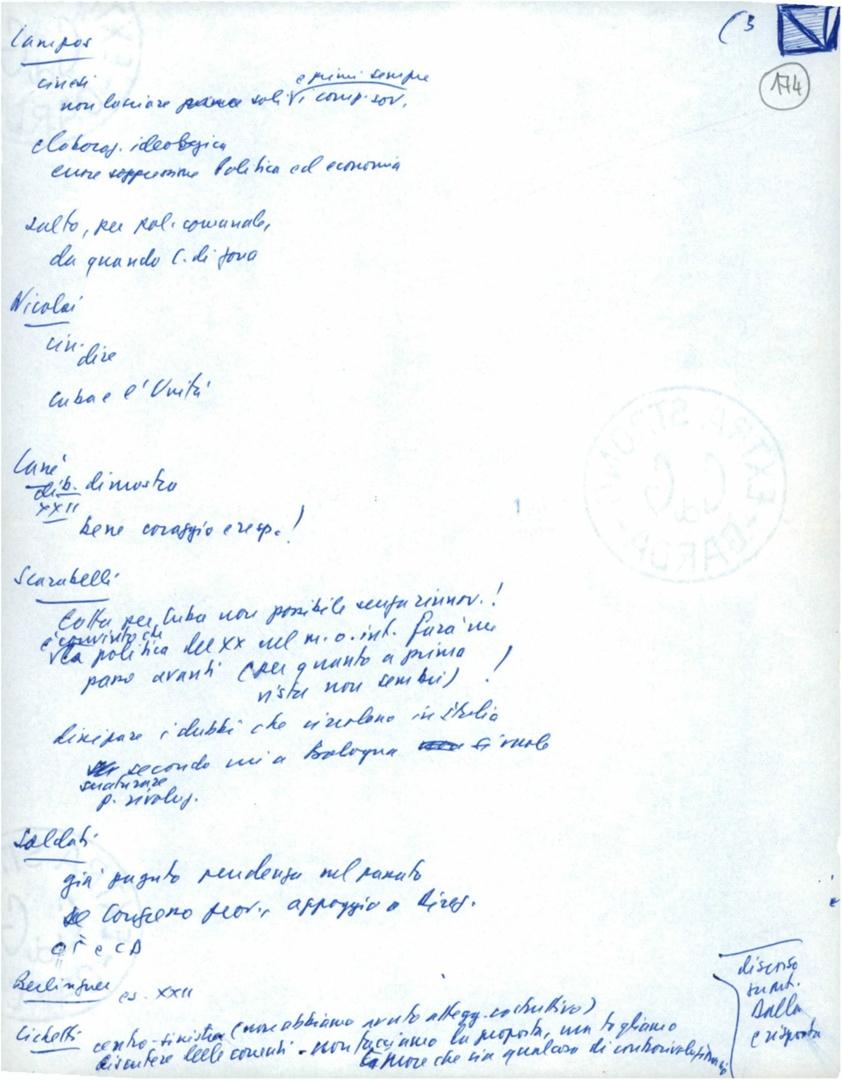 (3
174
Campos
cinesi
e primi sempre
non lasciare soli i comp. sov.
elaboraz. ideologica
soppressione politica ed economia
salto, per pol. comunale,
da quando C. di
Nicolai
cin.
dire
Cuba e l'Unità
Cané
dib. dimostra
XXII
bene coraggio e resp.!
Scarabelli
Lotta per Cuba non possibile senza rinnov.!
è convinto che
la politica del XX nel m.o. int. farà un
passo avanti (per quanto a prima
vista non sembri) !
dissipare i dubbi che circolano in Italia
secondo cui a Bologna si vuole
snaturare
p. rivoluz.
Soldati
già pagato nel passato
Congresso prov. appoggio a Direz.
Berlinguer es. XXII
Lichetti centro-sinistra (non abbiamo avuto attegg. costruttivo)
discutere delle correnti - non facciamo la proposta, ma togliamo
che sia qualcosa di controrivoluzionario
discorso
Dalla
e risposta
EXTRA STRONG
GARDA